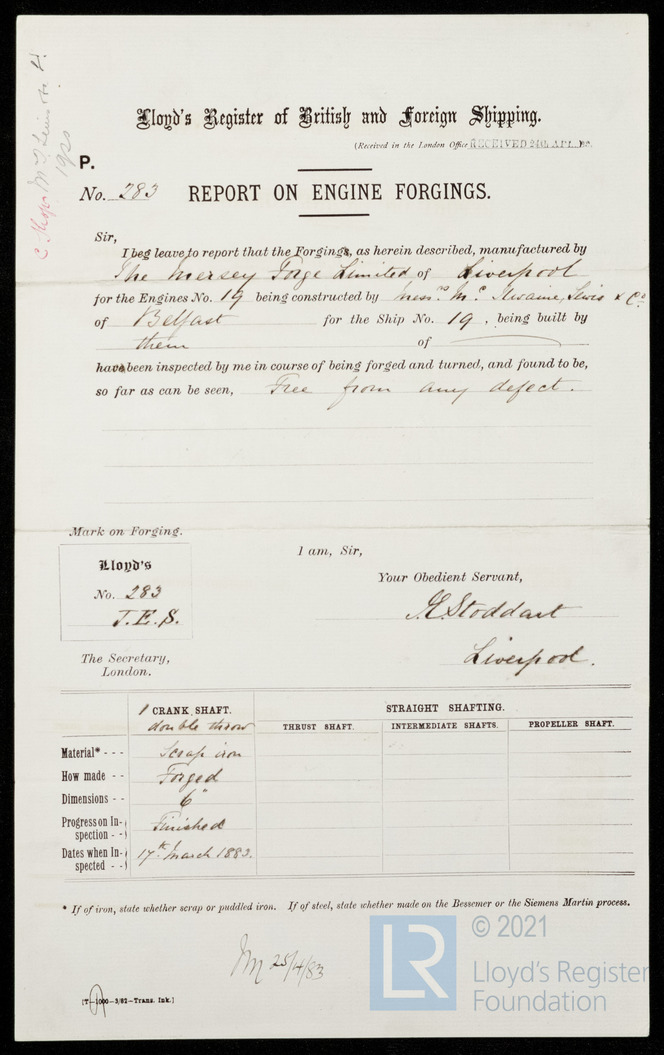 Lloyd's Register of British and Foreign Shipping.
(Received in the London Office RECEIVED 24th APL.
P.
No. 283 REPORT ON ENGINE FORGINGS.
Sir,
I beg leave to report that the Forgings, as herein described, manufactured by
The Mersey Forge Limited of Liverpool
for the Engines No. 19 being constructed by Mess.rs Mc. Ilwaine, Lewis & Co.
of Belfast for the Ship No. 19, being built by
them of
have been inspected by me in course of being forged and turned, and found to be,
so far as can be seen, Free from any defect.
Mark on Forging.
Lloyd's
No. 283
J.E.S.
I am, Sir,
Your Obedient Servant,
J.E. Stoddart
Liverpool.
The Secretary,
London.
1 CRANK SHAFT. STRAIGHT SHAFTING.
double throw THRUST SHAFT. INTERMEDIATE SHAFTS. PROPELLER SHAFT.
Material* - - - Scrap iron
How made - - Forged
Dimensions - - 6"
Progress on In-
spection - - Finished
Dates when In-
spected - - 17th March 1883.
* If of iron, state whether scrap or puddled iron. If of steel, state whether made on the Bessemer or the Siemens Martin process.
25/4/83
[T-1000-3/82-Trans. Ink.]
LR © 2021
Lloyd's Register
Foundation